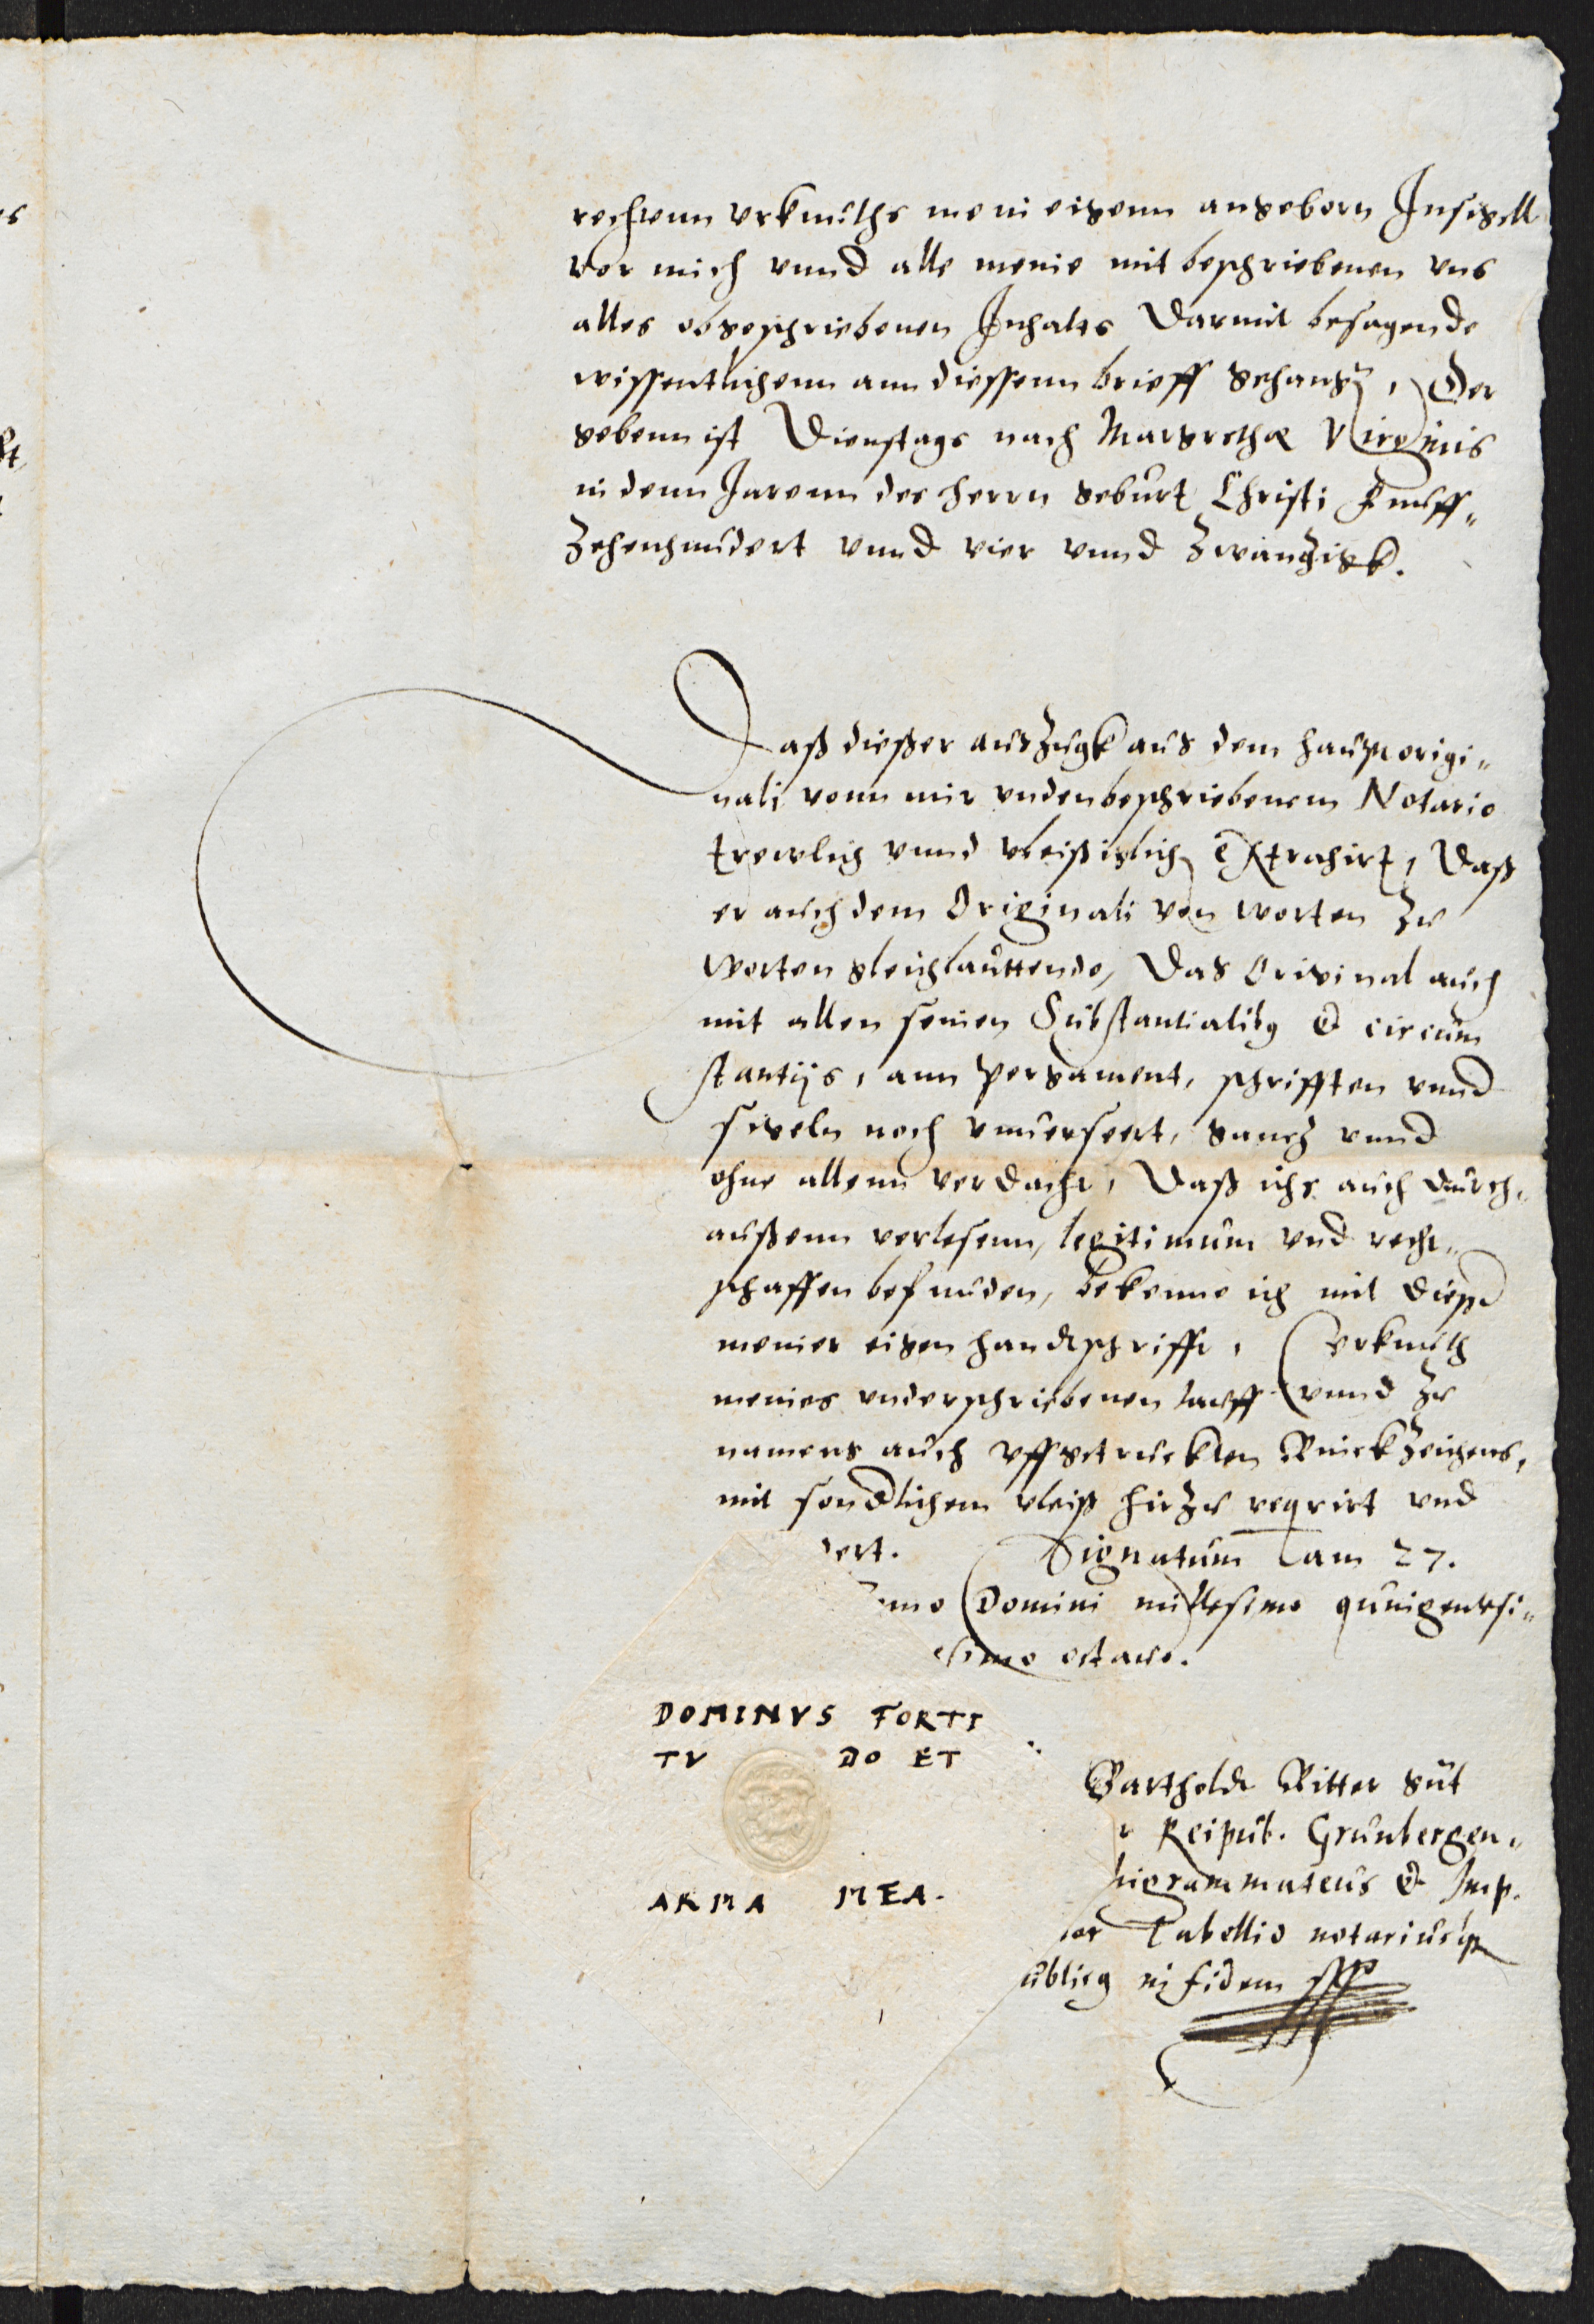 rechtenn urkunths mein eigenn angeborn Insigell
vor mich unnd alle meine mit beschriebenen uns
alles obgeschriebenen Inhalts darmit besagende
wissentlichenn ann diessenn brieff gehangt, Der
gebenn ist Dienstags nach Margrethæ Virginis
in denn Jarenn des herrn geburt Christi Funff„
zehenhundert unnd vier unnd zwanzigk.
Daß dießer auszugk aus dem haupt origi„
nali vonn mir undenbeschriebenem Notario
trewlich unnd vleißiglich extrahirt, Daß
er auch dem Originali von worten zu
worten gleichlauttende, Das Original auch
mit allen seinen Substantialibꝰ & circum
stantijs, ann pergament, schrifften unnd
sigeln noch unverseert, gantz unnd
ohne allenn verdacht, Daß ichs auch durch„
außenn verlesenn, legitimum und recht„
schaffen befunden, bekenne ich mit dießer
meiner eigen handtschrifft, Urkunth
meines underschriebenen tauff unnd zu
namens auch uffgetruckten Rinckzeichens,
mit sonderlichem vleiß hirzu requirt und
ert. Signatum am 27.
nno Domini millesimo quingentesi„
simo octavo.
DOMINVS FORTI
TV DO ET
ARMA MEA.
Bartholdt Ritter
Reipub. Grunbergen„
grammateus & Imp.
Tabellio notariusqꝫ
ublicꝰ in fidem sst